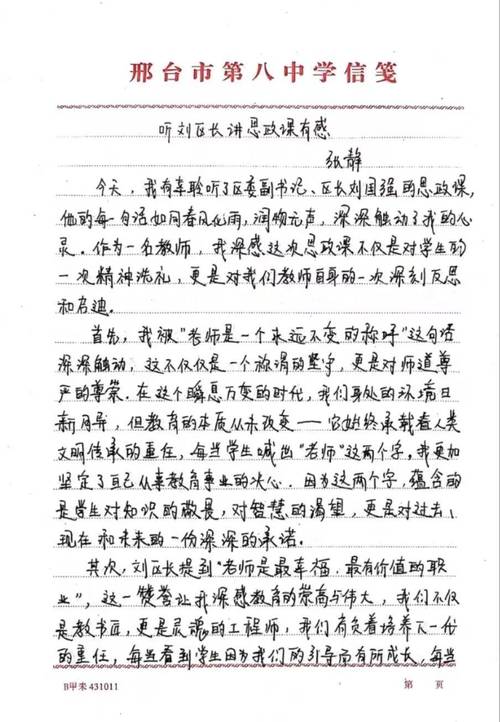 邢台市第八中学信笺
听刘区长讲思政课有感
张静
今天，我有幸聆听了区委副书记、区长刘国强的思政课，
他的每一句话如同春风化雨，润物无声，深深触动了我的心
灵。作为一名教师，我深感这次思政课不仅是对学生的
一次精神洗礼，更是对我们教师自身的一次深刻反思
和启迪.
首先，我被“老师是一个永远不变的称呼”这句话
深深触动，这不仅仅是一个称谓的坚守，更是对师道尊
严的尊崇。在这个瞬息万变的时代，我们身处的环境日
新月异，但教育的本质从未改变——它始终承载着人类
文明传承的重任，每当学生喊出“老师”这两个字，我更加
坚定了自己从事教育事业的决心.因为这两个字，蕴含的
是学生对知识的敬畏，对智慧的渴望，更是对过去、
现在和未来的一份深深的承诺.
其次，刘区长提到“老师是最幸福、最有价值的职
业”，这一赞誉让我深感教育的崇高与伟大，我们不仅
是教书匠，更是灵魂的工程师，我们肩负着培养下一代
的重任，每当看到学生因为我们的引导而有所成长，每当
B甲来431011
第 页